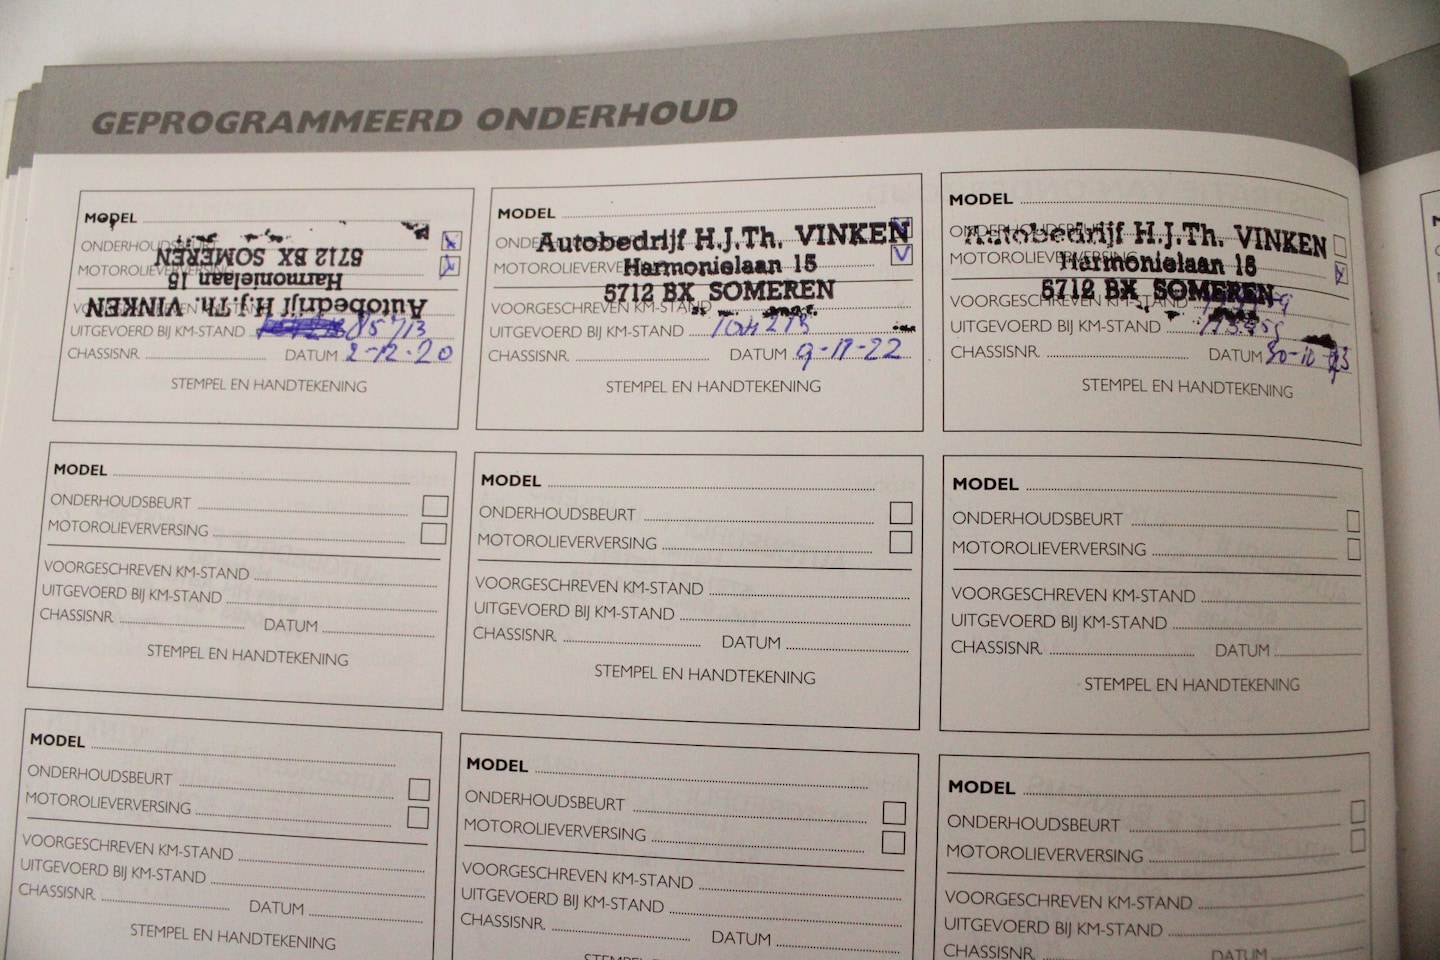 GEPROGRAMMEERD ONDERHOUD
MODEL
ONDERHOUDSBEURT
MOTOROLIEVERVERSING
Autobedrijf H.J.Th. VINKEN
Harmonielaan 15
5712 BX SOMEREN
UITGEVOERD BIJ KM-STAND 85713
CHASSISNR. DATUM 2-12-20
STEMPEL EN HANDTEKENING
MODEL
Autobedrijf H.J.Th. VINKEN
Harmonielaan 15
5712 BX SOMEREN
VOORGESCHREVEN KM-STAND
UITGEVOERD BIJ KM-STAND
CHASSISNR. DATUM 9-11-22
STEMPEL EN HANDTEKENING
MODEL
Autobedrijf H.J.Th. VINKEN
Harmonielaan 15
5712 BX SOMEREN
VOORGESCHREVEN KM-STAND
UITGEVOERD BIJ KM-STAND
CHASSISNR. DATUM 30-10-
STEMPEL EN HANDTEKENING
MODEL
ONDERHOUDSBEURT
MOTOROLIEVERVERSING
VOORGESCHREVEN KM-STAND
UITGEVOERD BIJ KM-STAND
CHASSISNR. DATUM
STEMPEL EN HANDTEKENING
MODEL
ONDERHOUDSBEURT
MOTOROLIEVERVERSING
VOORGESCHREVEN KM-STAND
UITGEVOERD BIJ KM-STAND
CHASSISNR. DATUM
STEMPEL EN HANDTEKENING
MODEL
ONDERHOUDSBEURT
MOTOROLIEVERVERSING
VOORGESCHREVEN KM-STAND
UITGEVOERD BIJ KM-STAND
CHASSISNR. DATUM
STEMPEL EN HANDTEKENING
MODEL
ONDERHOUDSBEURT
MOTOROLIEVERVERSING
VOORGESCHREVEN KM-STAND
UITGEVOERD BIJ KM-STAND
CHASSISNR. DATUM
STEMPEL EN HANDTEKENING
MODEL
ONDERHOUDSBEURT
MOTOROLIEVERVERSING
VOORGESCHREVEN KM-STAND
UITGEVOERD BIJ KM-STAND
CHASSISNR. DATUM
STEMPEL EN HANDTEKENING
MODEL
ONDERHOUDSBEURT
MOTOROLIEVERVERSING
VOORGESCHREVEN KM-STAND
UITGEVOERD BIJ KM-STAND
CHASSISNR. DATUM